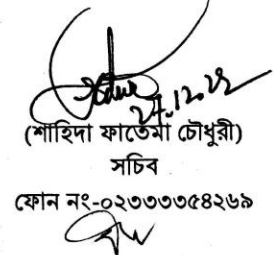 (শাহিদা ফাতেমা চৌধুরী)
সচিব
ফোন নং-০২৩৩৩৩৫৪২৬৯